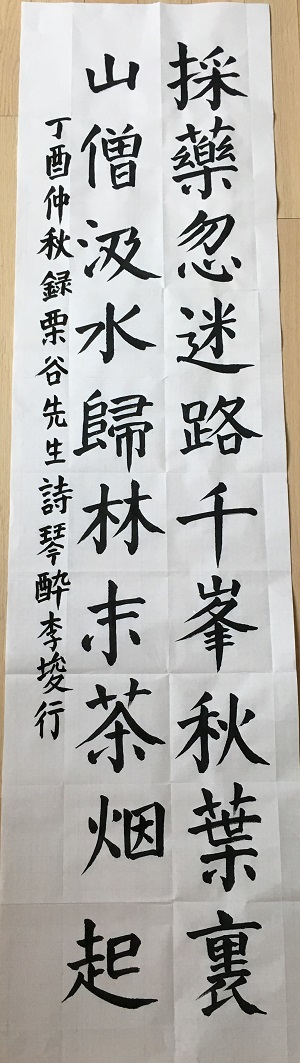 採藥忽迷路千峯秋葉裏
山僧汲水歸林末茶烟起
丁酉仲秋錄栗谷先生詩琴酔李埈行